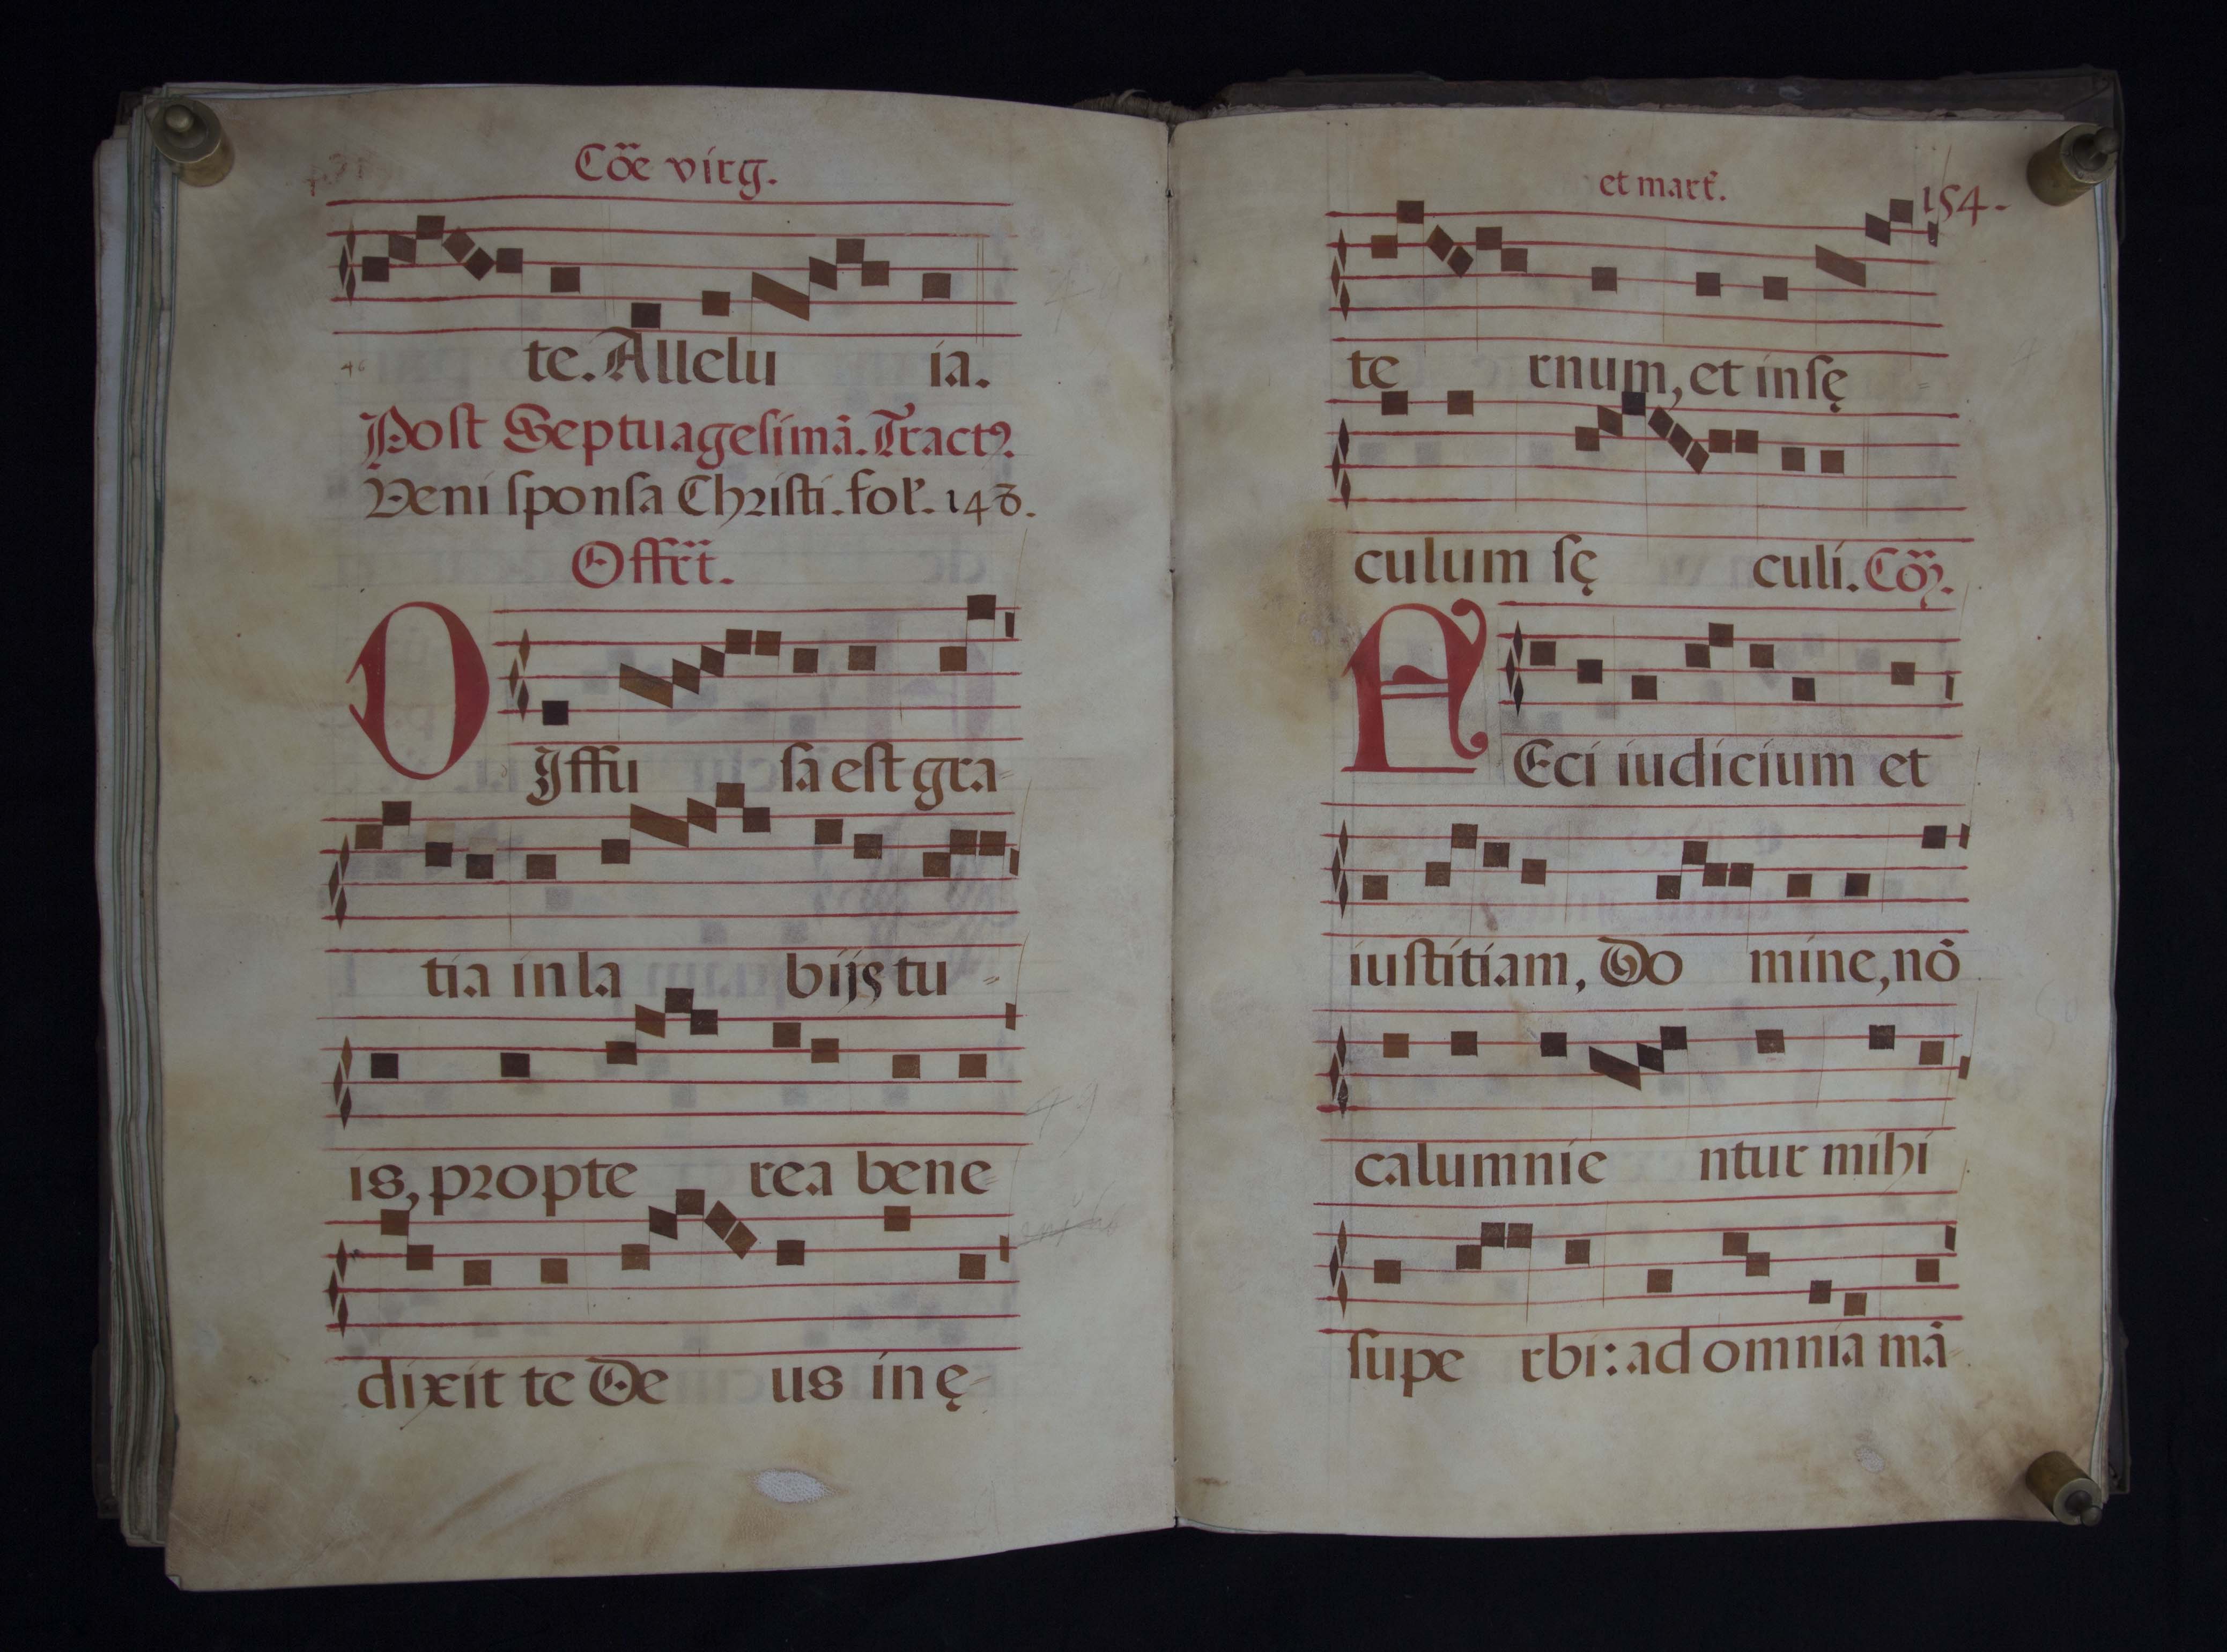 Cöe virg.
te. Allelu ia.
Post Septuagesimā. Tractꝰ.
Veni sponsa Christi. fol. 148.
Offrt.
DJffu sa est gra-
tia in la bijs tu-
is, propte rea bene-
dixit te De us in ę-
et mart.
154.
te rnum, et in sę-
culum sę culi. Cōɔ.
FEci iudicium et
iustitiam, Do mine, nō
calumnie ntur mihi
supe rbi: ad omnia mā